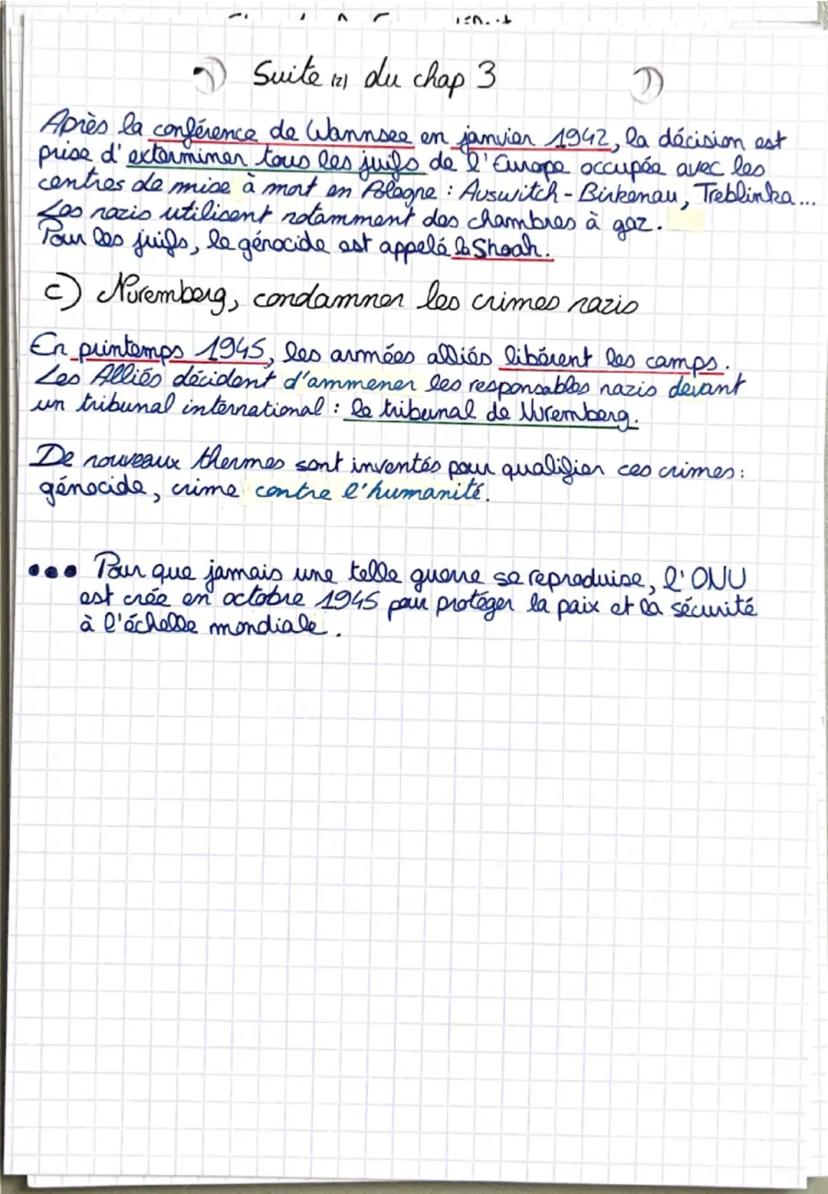 Suite (2) du chap 3
Après la conférence de Wannsee en janvier 1942, la décision est
prise d'exterminer tous les juifs de l'Europe occupée avec les
centres de mise à mort en Pologne : Auswitch-Birkenau, Treblinka...
Les nazis utilisent notamment des chambres à gaz.
Pour les juifs, le génocide est appelé la Shoah.
c) Nuremberg, condamner les crimes nazis
En printemps 1945, les armées alliés libèrent les camps.
Les Alliés décident d'ammener les responsables nazis devant
un tribunal international : le tribunal de Nuremberg.
De nouveaux thermes sont inventés pour qualifier ces crimes :
génocide, crime contre l'humanité.
••• Pour que jamais une telle guerre se reproduise, l'ONU
est crée en octobre 1945 pour protéger la paix et la sécurité
à l'échelle mondiale.